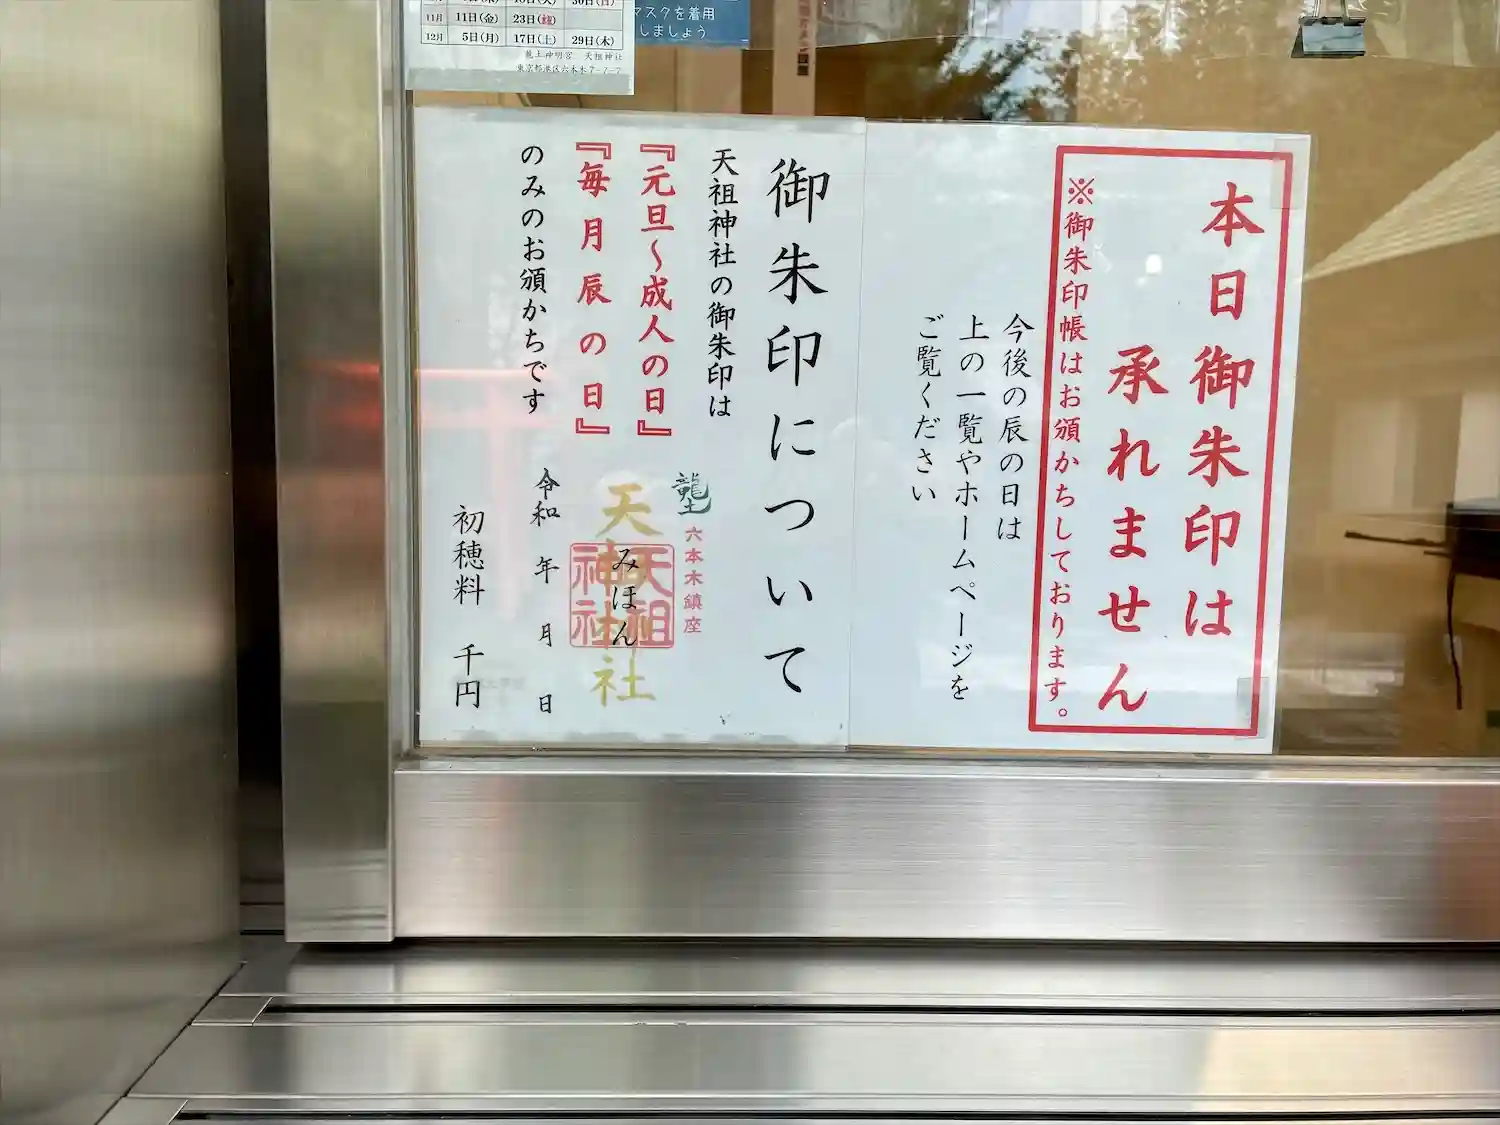 11月 11日(金) 23日(祝)
12月 5日(月) 17日(土) 29日(木)
龍土神明宮 天祖神社
東京都港区六本木7-7-7
マスクを着用
しましょう
本日御朱印は
承れません
※御朱印帳はお頒かちしております。
今後の辰の日は
上の一覧やホームページを
ご覧ください
御朱印について
天祖神社の御朱印は
『元旦〜成人の日』
『毎月辰の日』
のみのお頒かちです
龍土
六本木鎮座
天祖神社
天祖
神社
みほん
令和 年 月 日
初穂料 千円